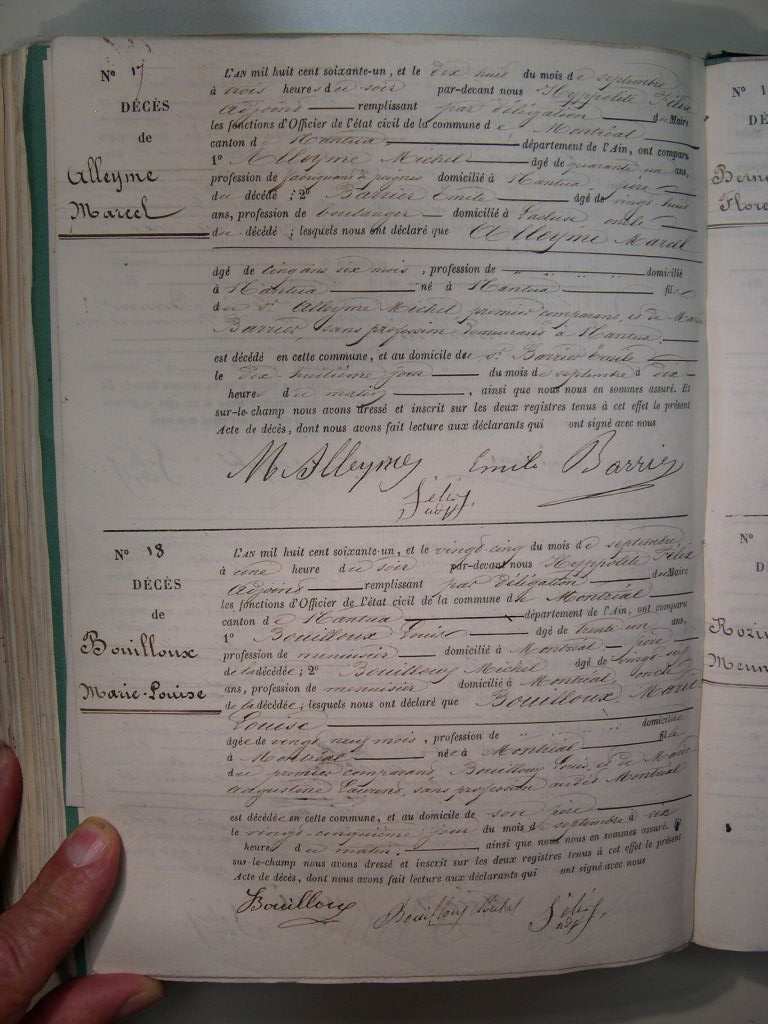 N° 17
DÉCÈS
de
Alleyme
Marcel
L'AN mil huit cent soixante-un, et le dix huit du mois de septembre
à trois heures du soir par-devant nous Hyppolite Félix
Adjoint remplissant par délégation du Maire
les fonctions d'Officier de l'état civil de la commune de Montréal
canton de Nantua département de l'Ain, ont comparu
1° Alleyme Michel âgé de quarante un ans,
profession de fabriquant de peignes domicilié à Nantua père
du décédé ; 2° Barrier Emile âgé de vingt huit
ans, profession de boulanger domicilié à oncle
du décédé ; lesquels nous ont déclaré que Alleyme Marcel
âgé de cinq ans six mois , profession de " " " " domicilié
à Nantua né à Nantua fils
du sr. Alleyme Michel premier comparant, et de Marie
Barrier, sans profession demeurant à Nantua
est décédé en cette commune, et au domicile du sr. Barrier Emile
le dix huitième jour du mois de septembre à dix
heures du matin , ainsi que nous nous en sommes assuré. Et
sur-le-champ nous avons dressé et inscrit sur les deux registres tenus à cet effet le présent
Acte de décès, dont nous avons fait lecture aux déclarants qui ont signé avec nous
M Alleyme Emile Barrier
Félix
adjt.
N° 18
DÉCÈS
de
Bouilloux
Marie-Louise
L'AN mil huit cent soixante-un, et le vingt cinq du mois de septembre
à une heure du soir par-devant nous Hyppolite Félix
Adjoint remplissant par délégation du Maire
les fonctions d'Officier de l'état civil de la commune de Montréal
canton de Nantua département de l'Ain, ont comparu
1° Bouilloux Louis âgé de trente un ans,
profession de menuisier domicilié à Montréal père
de la décédée ; 2° Bouilloux Michel âgé de vingt
ans, profession de menuisier domicilié à Montréal oncle
de la décédée ; lesquels nous ont déclaré que Bouilloux Marie
Louise
âgée de vingt neuf mois, profession de " " " " domiciliée
à Montréal née à Montréal fille
du premier comparant, Bouilloux Louis, et de Marie
Augustine Laurent, sans profession Montréal
est décédée en cette commune, et au domicile de son père
le vingt-cinquième jour du mois de septembre à dix
heures du matin, ainsi que nous nous en sommes assuré. Et
sur-le-champ nous avons dressé et inscrit sur les deux registres tenus à cet effet le présent
Acte de décès, dont nous avons fait lecture aux déclarants qui ont signé avec nous
Bouilloux Bouilloux Michel Félix
adjt.
N° 1
DÉ
Bern
Flore
N°
D
Rozi
Meun